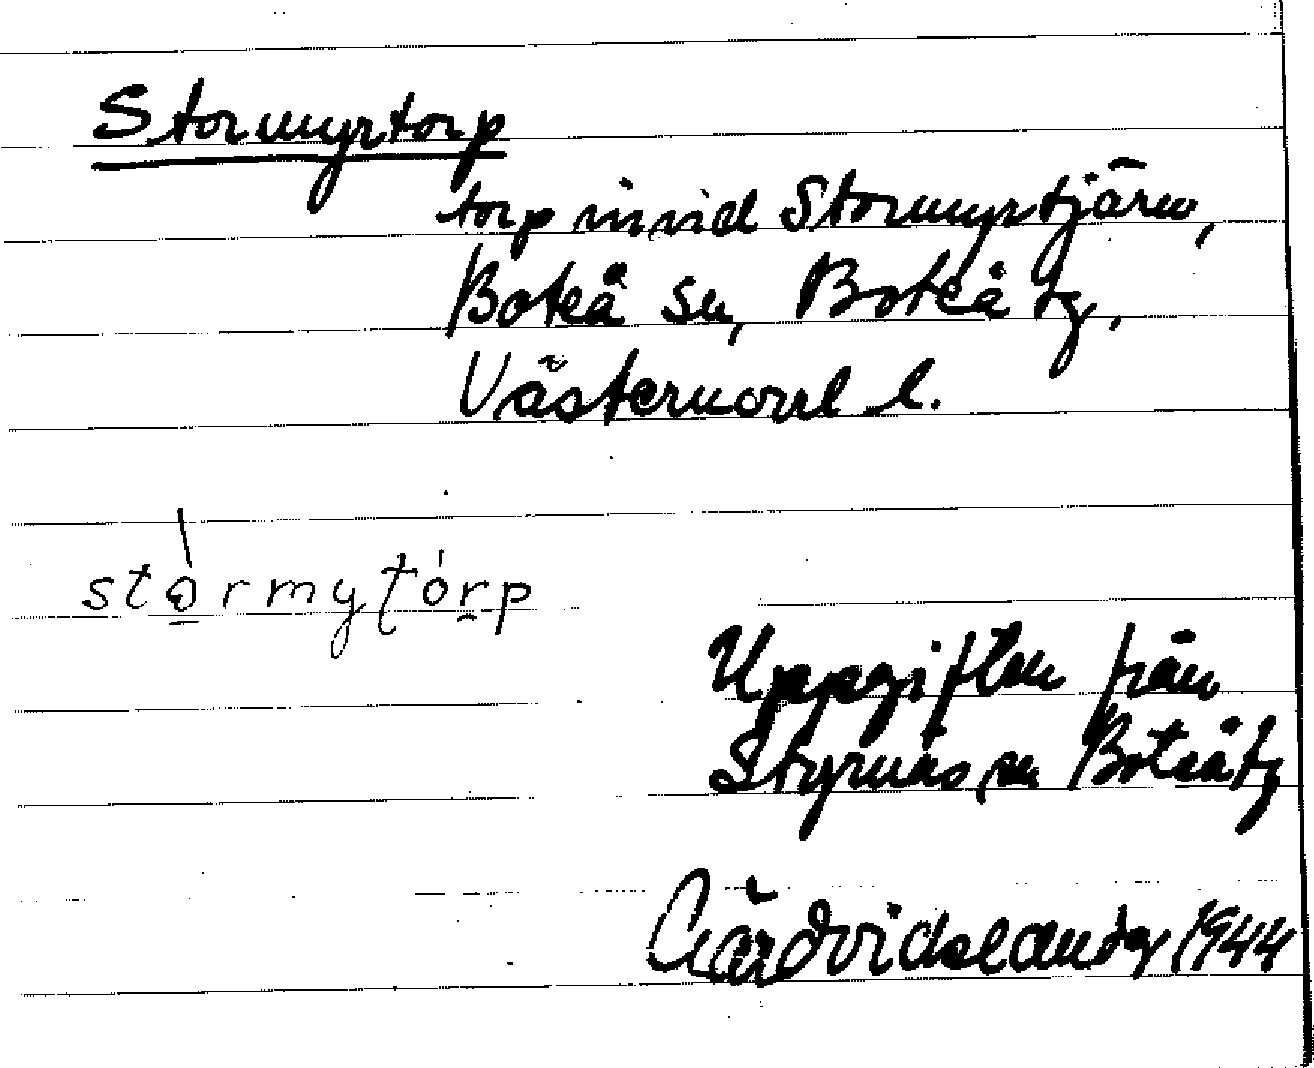 Stormyrtorp
torp invid Stormyrtjärn,
Boteå sn, Boteå tg,
Västernorrl l.
stòrmytórp
Uppgiften från
Styrnäs sn Boteå tg
Gärdvidsland 1944